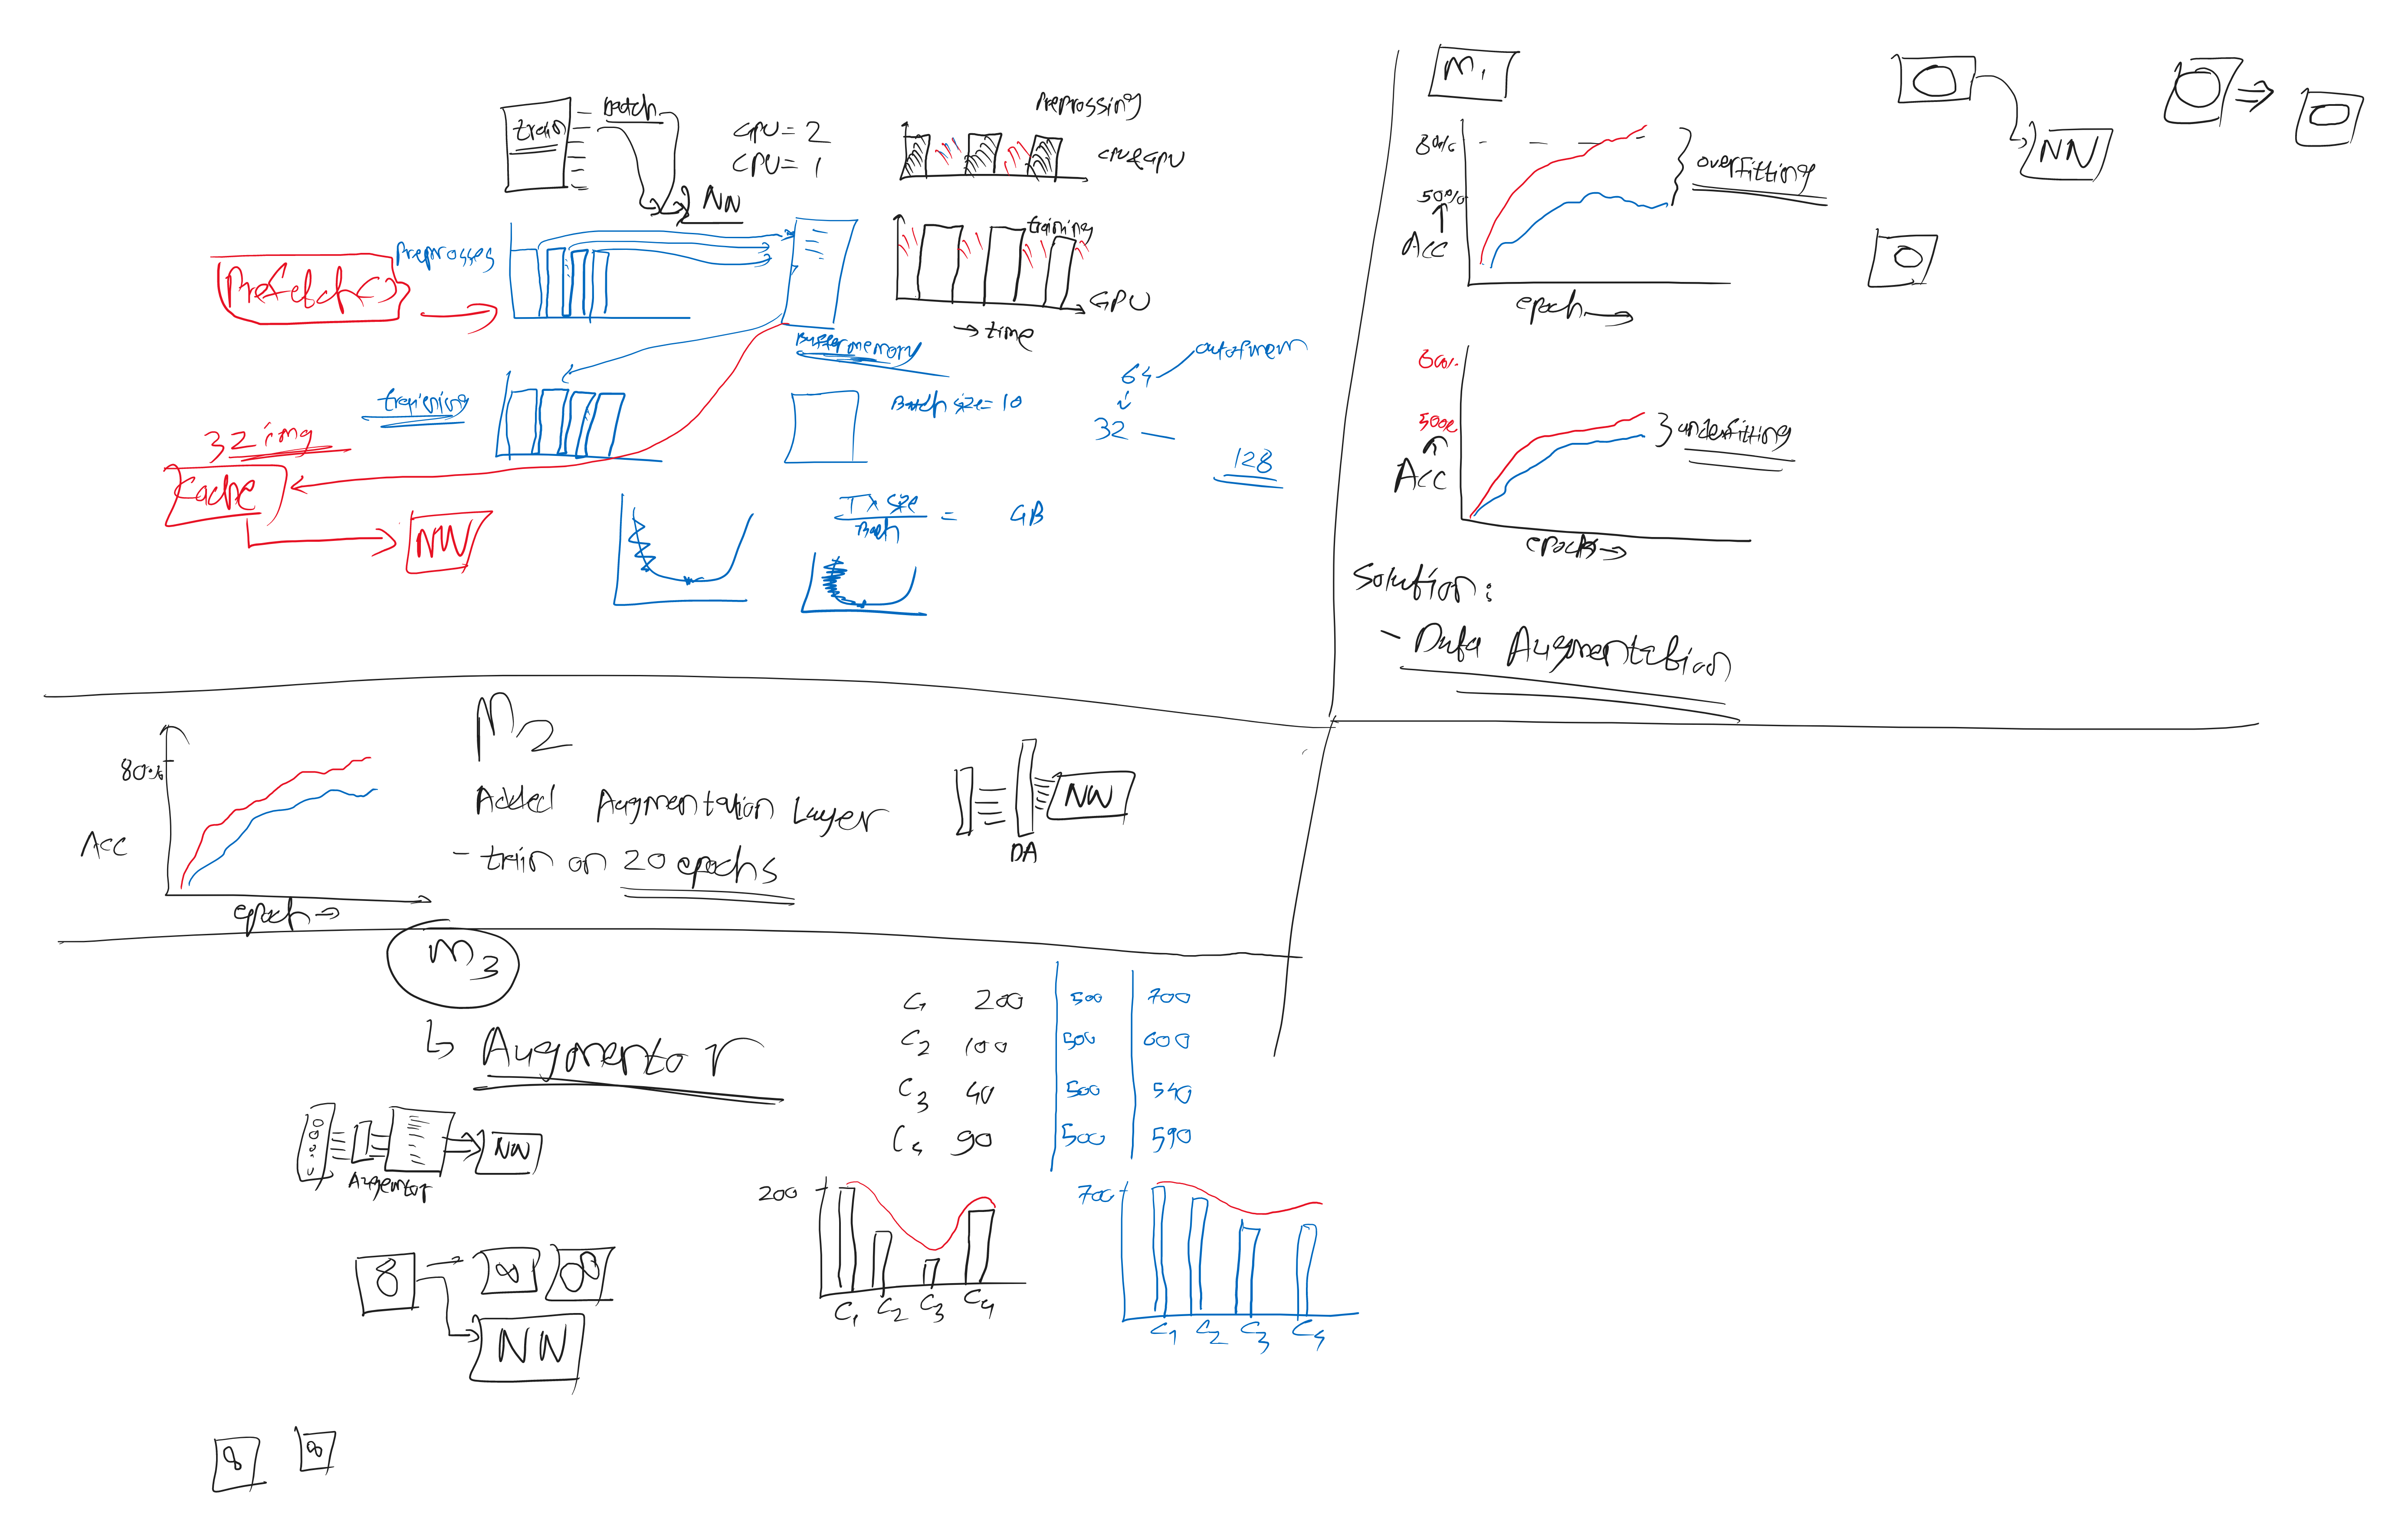 train
batch
GPU = 2
CPU = 1
NN
Preprossing
CPU & GPU
training
GPU
→ time
Prefetch()
Preprosses
Buffer memory
32 img
Cache
NN
Batch size = 10
64
out of mem
32
128
= GB
M1
80%
50%
Acc
epoch →
overfitting
NN
50%
Acc
epochs →
underfitting
Solution:
- Data Augmentation
80%
Acc
epoch →
M2
Added Augmentation Layer
- train on 20 epochs
DA
NN
M3
↳ Augmentor
NN
8
NN
8
8
C1 200 500 700
C2 100 500 600
C3 40 500 540
C4 90 500 590
200
C1 C2 C3 C4
700
C1 C2 C3 C4